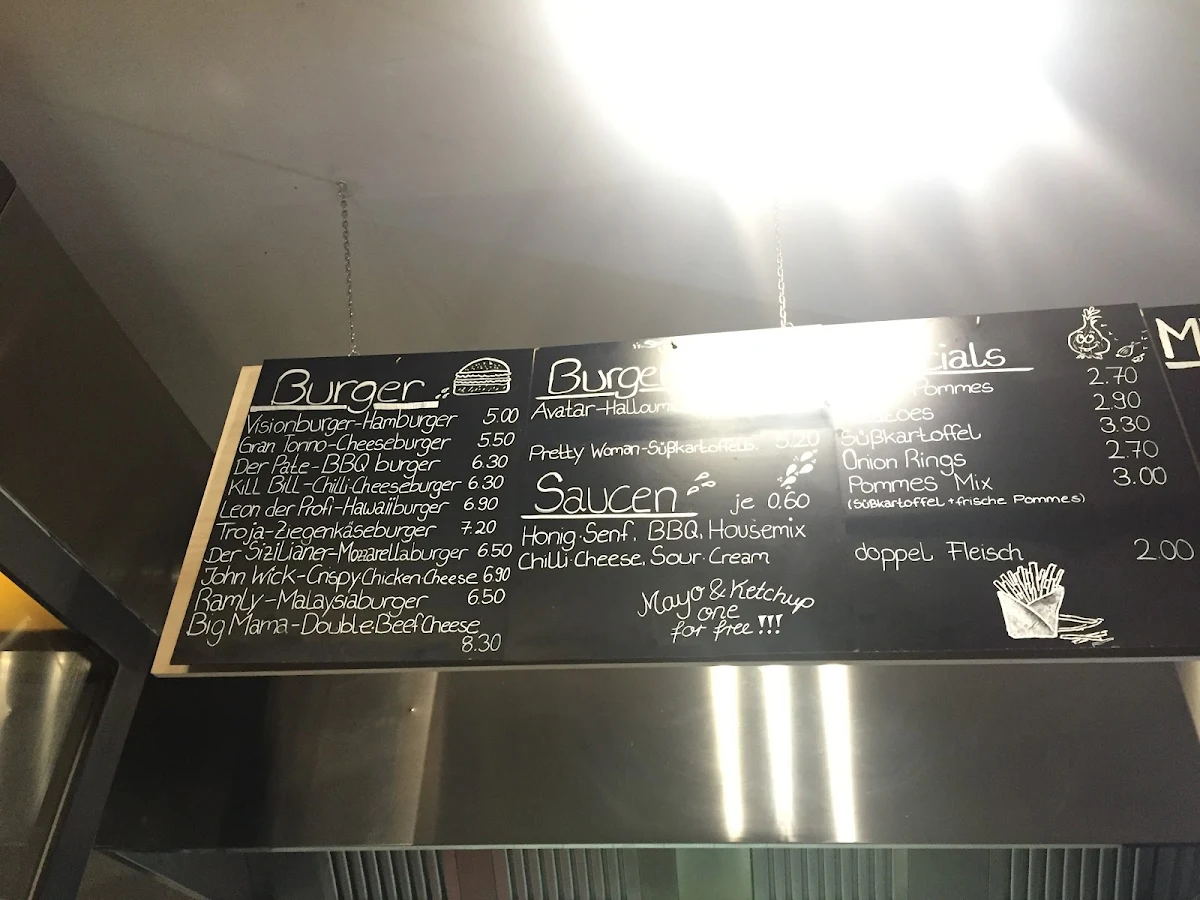 Burger
Visionburger-Hamburger 5.00
Gran Torino-Cheeseburger 5.50
Der Pate-BBQ burger 6.30
Kill Bill-Chilli-Cheeseburger 6.30
Leon der Profi-Hawaiiburger 6.90
Troja-Ziegenkäseburger 7.20
Der Sizilianer-Mozzarellaburger 6.50
John Wick-Crispy-Chicken Cheese 6.90
Ramly-Malaysiaburger 6.50
Big Mama-Double-Beef Cheese
8.30
Burge
Avatar-Halloumi
Pretty Woman-Süßkartoffelb. 5.20
Saucen je 0.60
Honig-Senf, BBQ, Housemix
Chilli-Cheese, Sour-Cream
Mayo & Ketchup
one
for free !!!
cials
Pommes 2.70
toes 2.90
Süßkartoffel 3.30
Onion Rings 2.70
Pommes Mix 3.00
(Süßkartoffel + frische Pommes)
doppel Fleisch 2.00
M